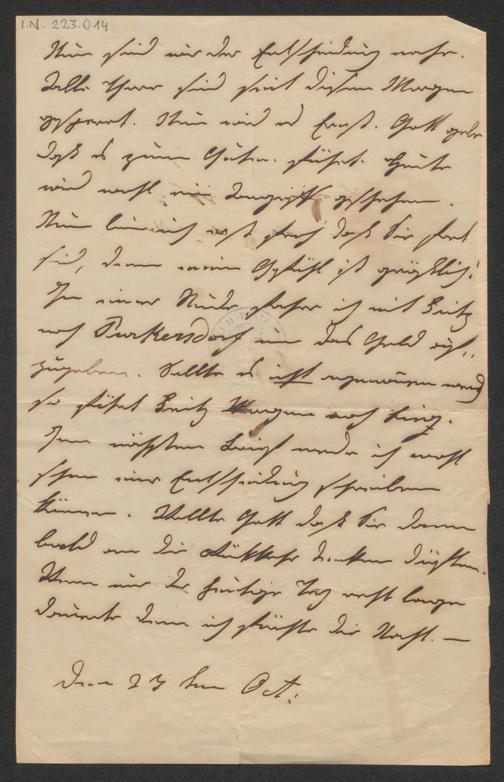 I.N. 223.014
Nun sind wir der Entscheidung nahe.
Alle Thore sind seit diesem Morgen
gesperrt. Nun wird es Ernst. Gott gebe
daß es zum Guten führt. Heute
wird wohl ein Angriff geschehen.
Nun bin ich erst froh daß Sie fort
sind, denn mein Gefühl ist gräßlich!
In einer Stunde fahre ich mit Fritz
nach Purkersdorf um das Geld auf-
zugeben. Sollte es nicht angenommen werd
so führt Fritz Morgen nach Linz.
Im nächsten Brief werde ich wohl
schon eine Entscheidung schreiben
können. Wollte Gott daß Sie dann
bald an die Rückkehr denken dürften.
Wenn nur der heutige Tag recht lange
dauerte denn ich fürchte die Nacht. —
Den 27ten Oct: